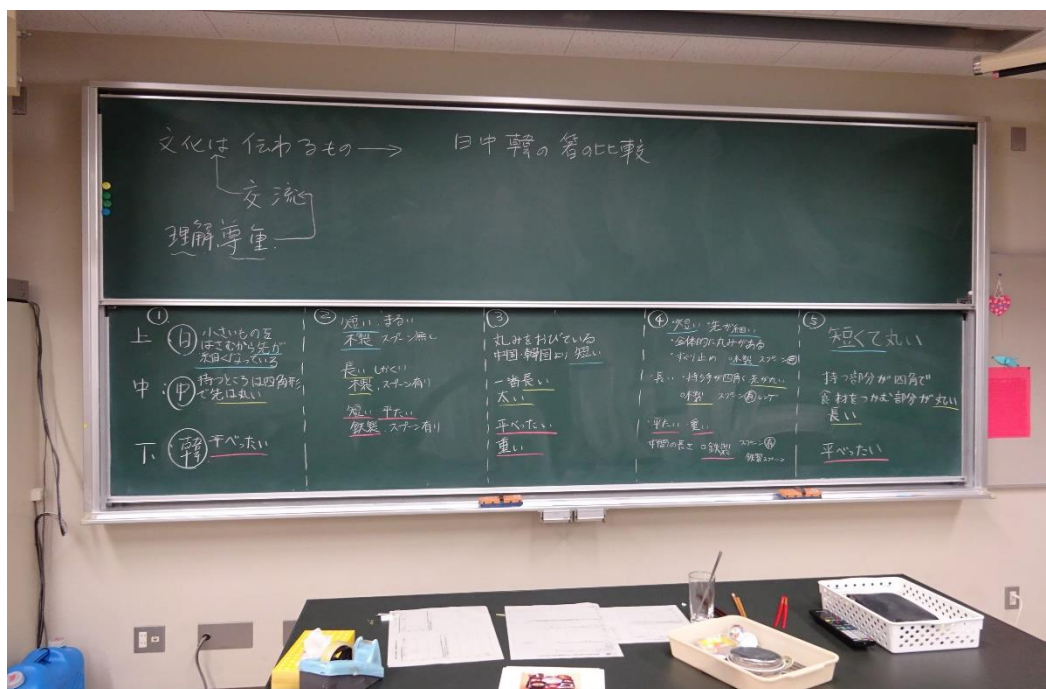 文化は伝わるもの→ 日中韓の箸の比較
交流
理解尊重
①
上:日 小さいものを
はさむから先が
細くなっている
中:中 持つところは四角形
で先は丸い
下:韓 平べったい
②
短い まるい
木製 スプーン無し
長い しかくい
木製 スプーン有り
短い 平たい
鉄製 スプーン有り
③
丸みをおびている
中国・韓国より短い
一番長い
太い
平べったい
重い
④
・短い ・先が細い
・全体的に丸みがある
・すべり止め ○木製 スプーン
・長い ・持ち手が四角く先がたい
○木製 スプーン有
・平たい ・重い
中間の長さ ○鉄製 スプーン有
鉄製スプーン
⑤
短くて丸い
持つ部分が四角で
食材をつかむ部分が丸い
長い
平べったい